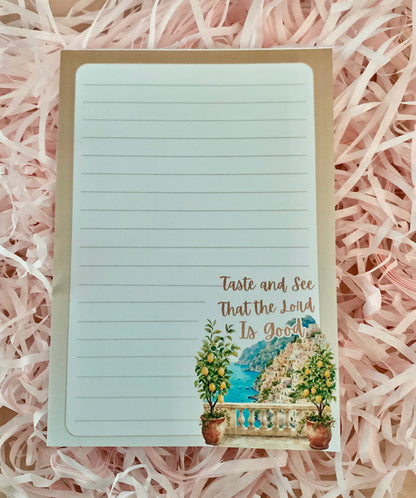 Taste and See
That the Lord
Is Good